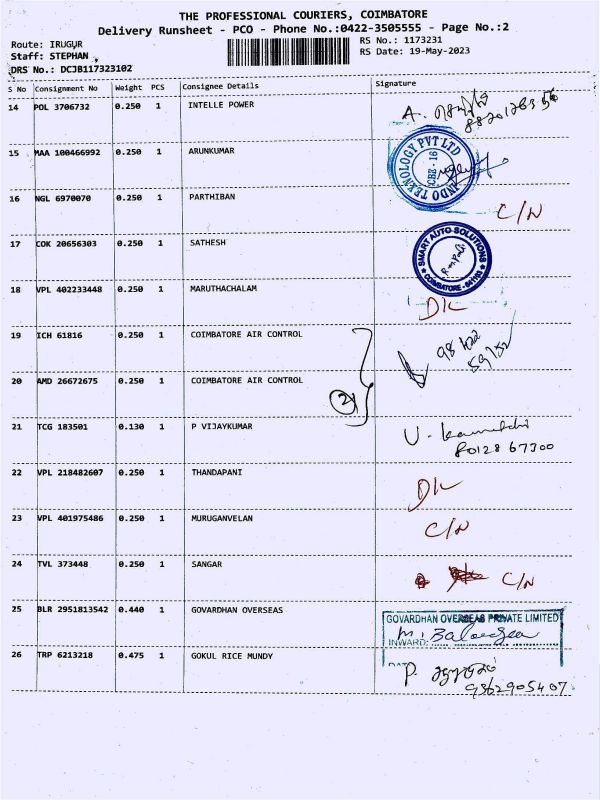 THE PROFESSIONAL COURIERS, COIMBATORE
Delivery Runsheet - PCO - Phone No.:0422-3505555 - Page No.:2
Route: IRUGUR
RS No.: 1173231
Staff: STEPHAN
RS Date: 19-May-2023
DRS No.: DCJB117323102
S No Consignment No Weight PCS Consignee Details Signature
14 POL 3706732 0.250 1 INTELLE POWER A.
15 MAA 100466992 0.250 1 ARUNKUMAR
INDO TEKNOLOGY PVT LTD
CBE - 16
16 NGL 6970070 0.250 1 PARTHIBAN C/N
17 COK 20656303 0.250 1 SATHESH
SMART AUTO SOLUTIONS
COIMBATORE
18 VPL 402233448 0.250 1 MARUTHACHALAM D/L
19 ICH 61816 0.250 1 COIMBATORE AIR CONTROL
20 AMD 26672675 0.250 1 COIMBATORE AIR CONTROL
2
21 TCG 183501 0.130 1 P VIJAYKUMAR
80128 67300
22 VPL 218482607 0.250 1 THANDAPANI D/L
23 VPL 401975486 0.250 1 MURUGANVELAN C/N
24 TVL 373448 0.250 1 SANGAR C/N
25 BLR 2951813542 0.440 1 GOVARDHAN OVERSEAS
GOVARDHAN OVERSEAS PRIVATE LIMITED
INWARD:
26 TRP 6213218 0.475 1 GOKUL RICE MUNDY P.
9362905407